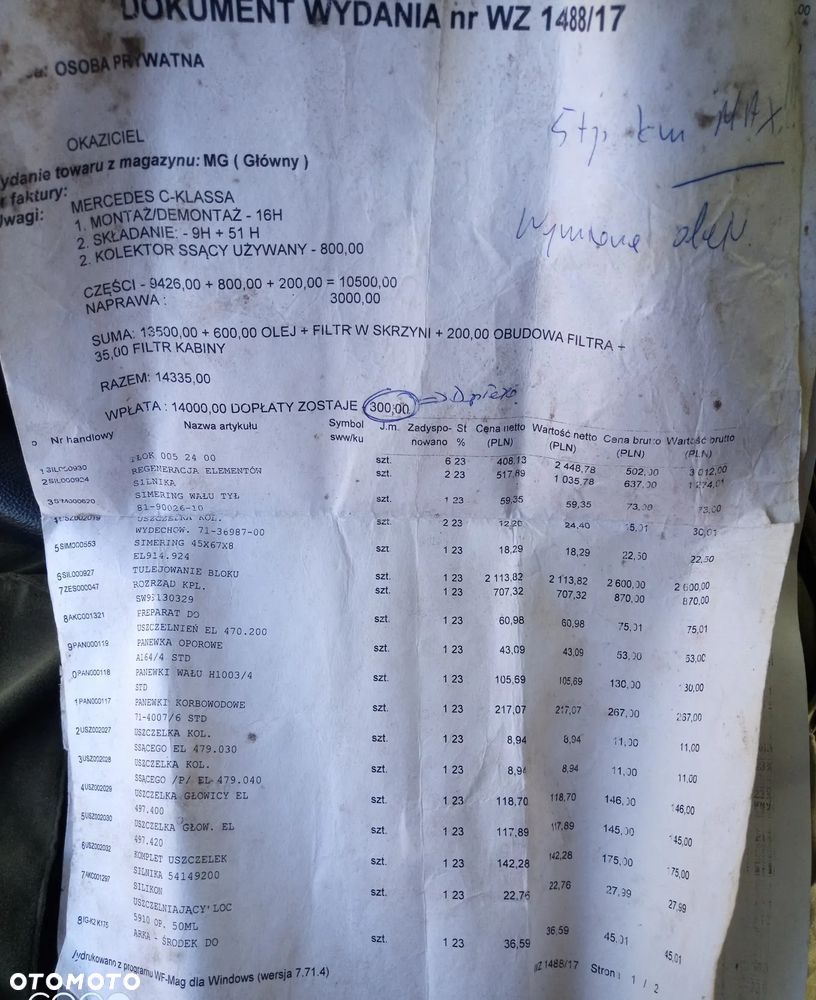 DOKUMENT WYDANIA nr WZ 1488/17
OSOBA PRYWATNA
5 tyś km MAX.
OKAZICIEL
Wydanie towaru z magazynu: MG ( Główny )
faktury:
Uwagi: MERCEDES C-KLASSA
1. MONTAŻ/DEMONTAŻ - 16H
2. SKŁADANIE: - 9H + 51 H
2. KOLEKTOR SSĄCY UŻYWANY - 800,00
olej
CZĘŚCI - 9426,00 + 800,00 + 200,00 = 10500,00
NAPRAWA : 3000,00
SUMA: 13500,00 + 600,00 OLEJ + FILTR W SKRZYNI + 200,00 OBUDOWA FILTRA +
35,00 FILTR KABINY
RAZEM: 14335,00
WPŁATA : 14000,00 DOPŁATY ZOSTAJE 300,00 =>
Nr handlowy Nazwa artykułu Symbol sww/ku J.m. Zadyspo-nowano St % Cena netto (PLN) Wartość netto (PLN) Cena brutto (PLN) Wartość brutto (PLN)
1 SIL000930 TŁOK 005 24 00 szt. 6 23 408,13 2 448,78 502,00 3 012,00
2 SIL000934 REGENERACJA ELEMENTÓW szt. 2 23 517,89 1 035,78 637,00 1 274,01
SILNIKA
3 SIM000620 SIMERING WAŁU TYŁ szt. 1 23 59,35 59,35 73,00 73,00
81-90026-10
4 USZ002019 USZCZELKA KOL. szt. 2 23 12,20 24,40 15,01 30,01
WYDECHOW. 71-36987-00
5 SIM000553 SIMERING 45X67X8 szt. 1 23 18,29 18,29 22,50 22,50
EL914.924
6 SIL000927 TULEJOWANIE BLOKU szt. 1 23 2 113,82 2 113,82 2 600,00 2 600,00
7 ZES000047 ROZRZĄD KPL. szt. 1 23 707,32 707,32 870,00 870,00
SW99130329
8 AKC001321 PREPARAT DO szt. 1 23 60,98 60,98 75,01 75,01
USZCZELNIEŃ EL 470.200
9 PAN000119 PANEWKA OPOROWE szt. 1 23 43,09 43,09 53,00 53,00
A164/4 STD
0 PAN000118 PANEWKI WAŁU H1003/4 szt. 1 23 105,69 105,69 130,00 130,00
STD
1 PAN000117 PANEWKI KORBOWODOWE szt. 1 23 217,07 217,07 267,00 267,00
71-4007/6 STD
2 USZ002027 USZCZELKA KOL. szt. 1 23 8,94 8,94 11,00 11,00
SSĄCEGO EL 479.030
3 USZ002028 USZCZELKA KOL. szt. 1 23 8,94 8,94 11,00 11,00
SSĄCEGO /P/ EL 479.040
4 USZ002029 USZCZELKA GŁOWICY EL szt. 1 23 118,70 118,70 146,00 146,00
497.400
5 USZ002030 USZCZELKA GŁOW. EL szt. 1 23 117,89 117,89 145,00 145,00
497.420
6 USZ002032 KOMPLET USZCZELEK szt. 1 23 142,28 142,28 175,00 175,00
SILNIKA 54149200
7 AKC001297 SILIKON szt. 1 23 22,76 22,76 27,99 27,99
USZCZELNIAJĄCY LOC
5910 OP. 50ML
8 IG-K2 K175 ARKA - ŚRODEK DO szt. 1 23 36,59 36,59 45,01 45,01
Wydrukowano z programu WF-Mag dla Windows (wersja 7.71.4) WZ 1488/17 Strona 1 / 2
OTOMOTO